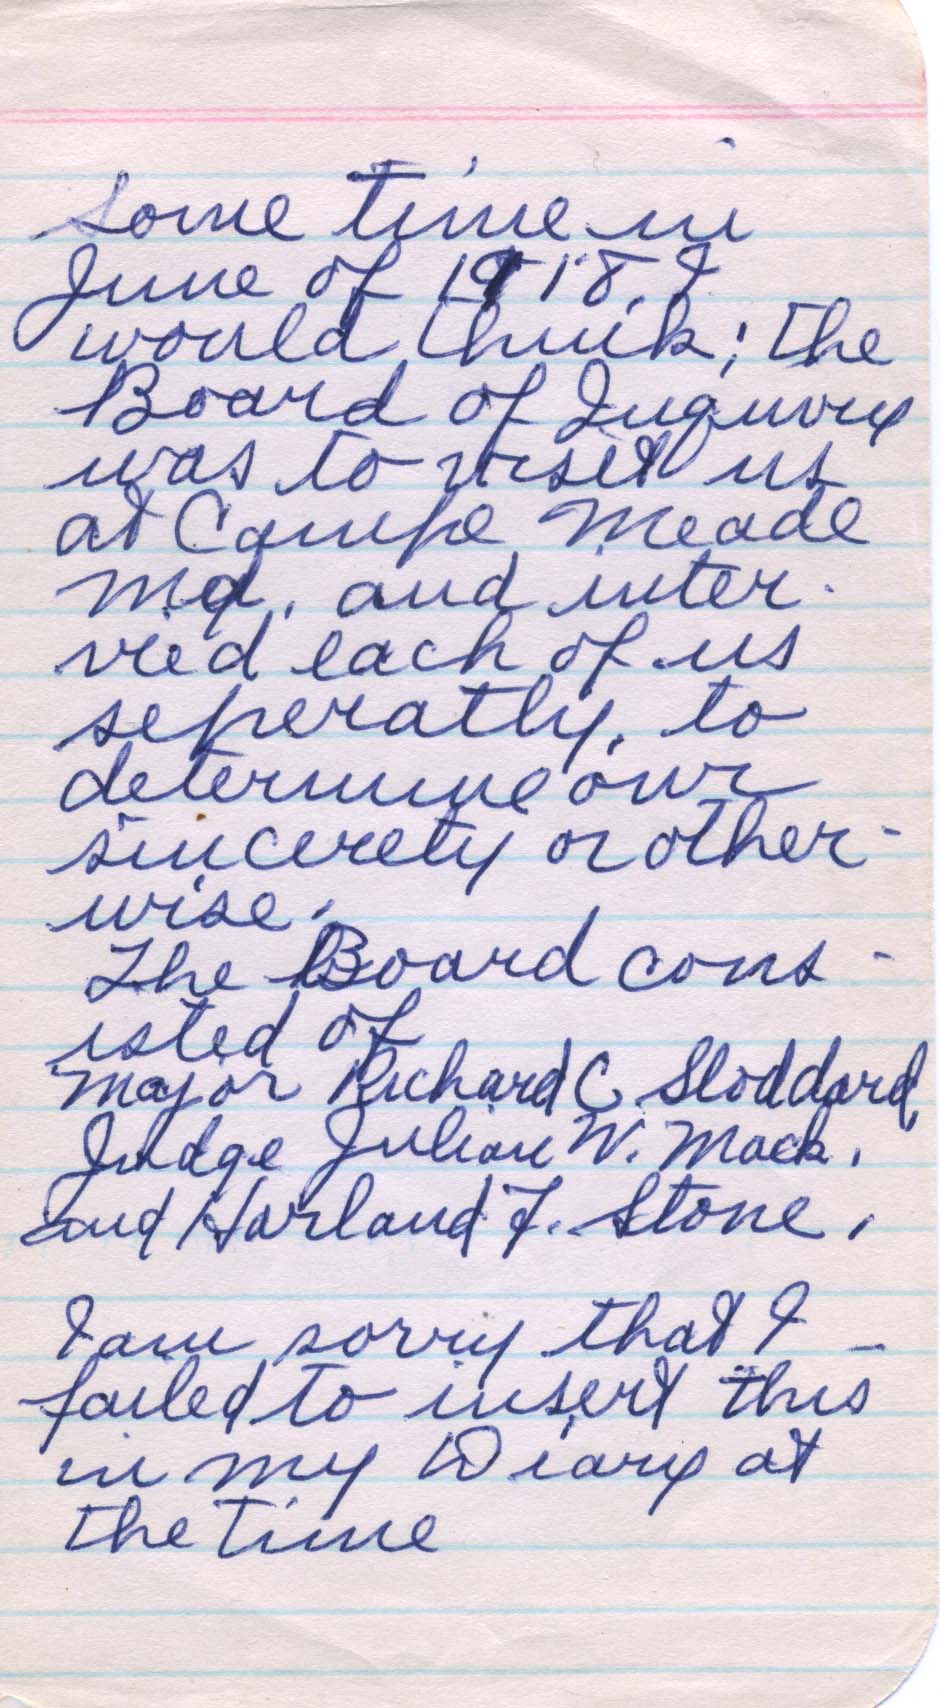 Some time in
June of 1918, I
would think; the
Board of Inquiry
was to visit us
at Campe Meade
Md. and inter-
vied each of us
seperatly, to
determine our
sincerety or other-
wise.
The Board cons-
isted of
Major Richard C. Stoddard,
Judge Julian W. Mack,
and Harland F. Stone,
I am sorry that I
failed to insert this
in my Diary at
the time